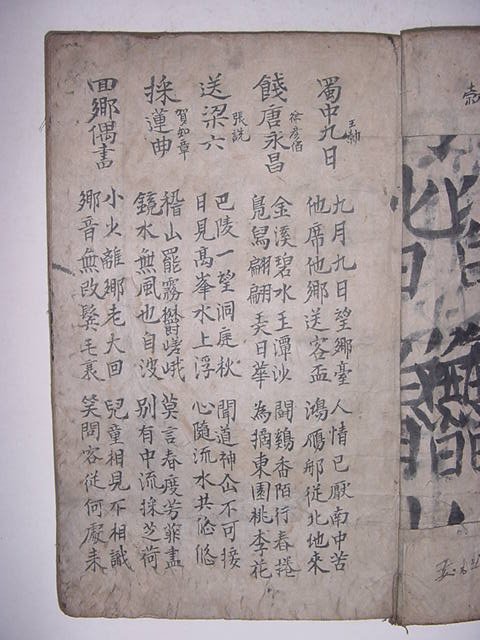 蜀中九日
王勃
九月九日望鄉臺
他席他鄉送客盃
人情已厭南中苦
鴻鴈那從北地來
餞唐永昌
徐彦伯
金溪碧水王潭沙
鳧舃翩翩日華
鬪鷄香陌行春捲
為摘東園桃李花
送梁六
張說
巴陵一望洞庭秋
日見高峯水上浮
聞道神仚不可接
心隨流水共悠悠
採蓮曲
賀知章
稽山罷霧欝嵯峨
鏡水無風也自波
莫言春度芳菲盡
別有中流採芝荷
回鄉偶書
小火離鄉老大回
鄉音無改鬢毛衰
兒童相見不相識
笑問客從何處来